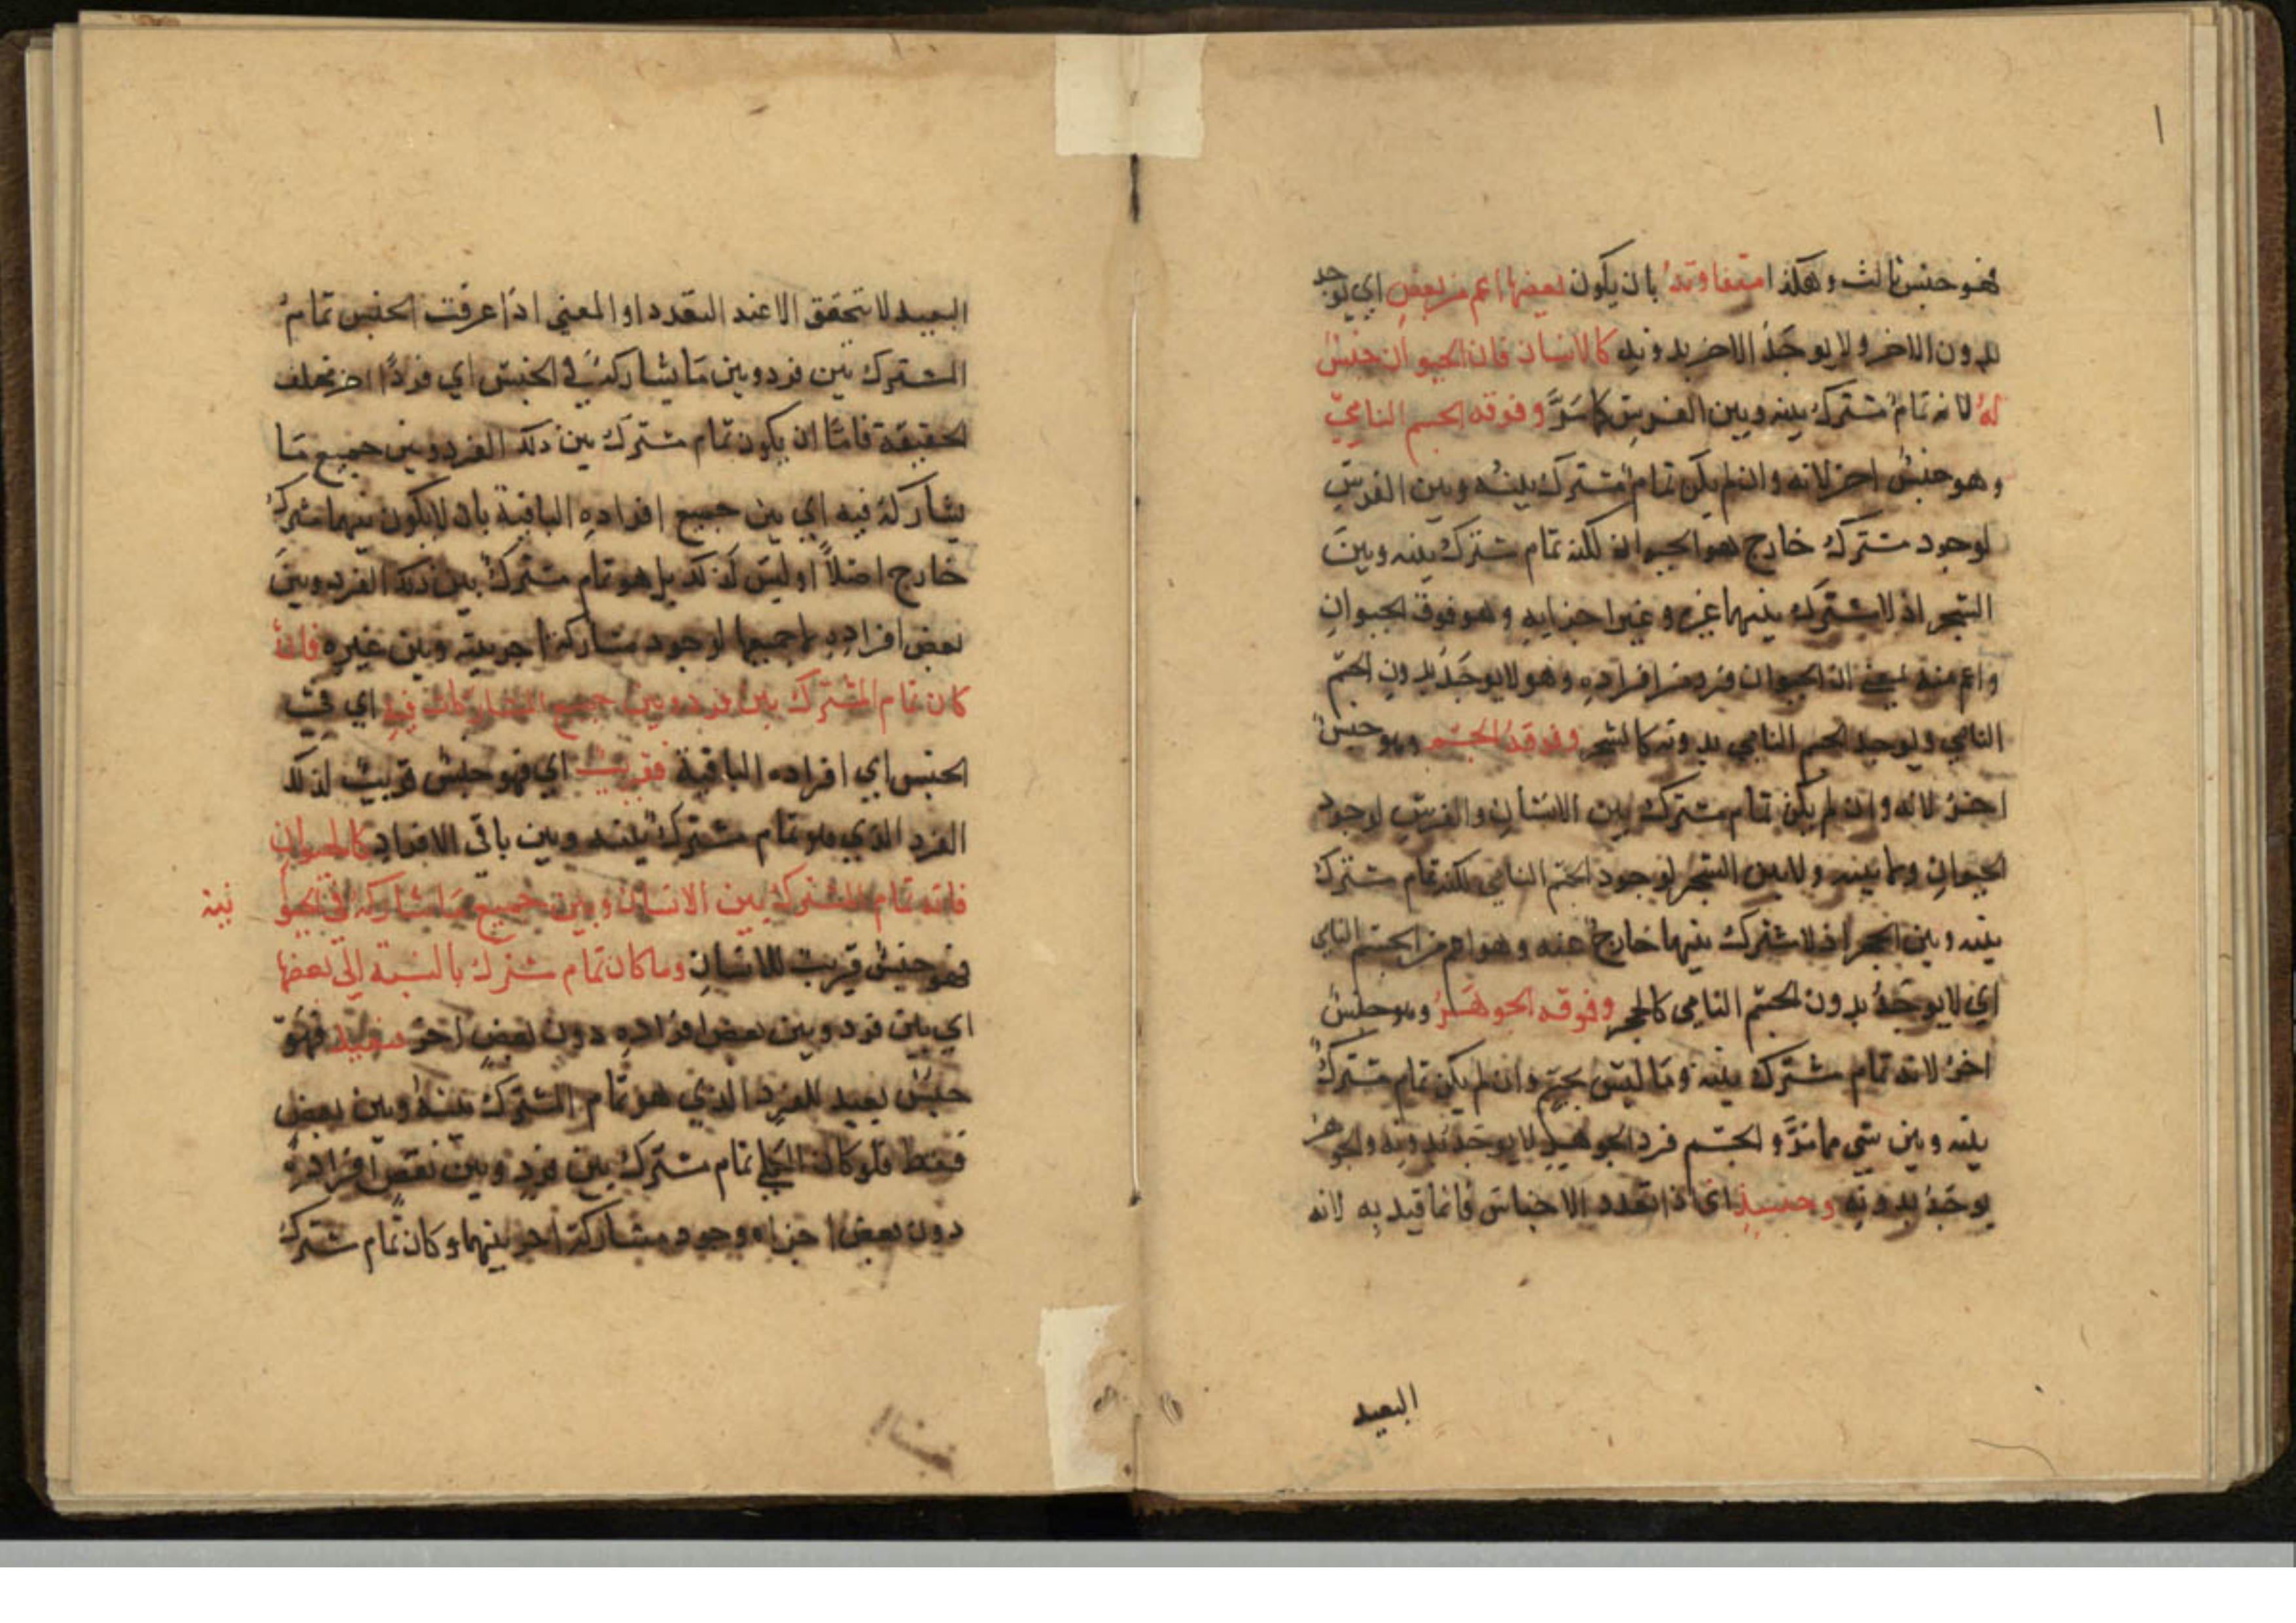 فهو جنس ثالث وهكذا متفاوتة بان يكون بعضها اعم من بعض اي يوجد
بدون الاخر ولا يوجد الاخر بدونه كالانسان فان الحيوان جنس
له لانه تمام مشترك بينه وبين الفرس كما مر وفوقه الجسم النامي
وهو جنس اخر لانه وان لم يكن تمام مشترك بينه وبين الفرس
لوجود مشترك خارج هو الحيوان لكنه تمام مشترك بينه وبين
الشجر اذ لا مشترك بينهما غيره وغير اجزايه وهو فوق الحيوان
واعم منه بمعني ان الحيوان فرد من افراده وهو لا يوجد بدون الجسم
النامي ويوجد الجسم النامي بدونه كالشجر وفوقه الجسم وهو جنس
اخر لانه وان لم يكن تمام مشترك بين الانسان والفرس لوجود
الحيوان وما بينه ولا بين الشجر لوجود الجسم النامي لكنه تمام مشترك
بينه وبين الحجر اذ لا مشترك بينهما خارج عنه وهو اعم من الجسم النامي
اي لا يوجد بدون الجسم النامي كالحجر وفوقه الجوهر وهو جنس
اخر لانه تمام مشترك بينه وما ليس بجسم وان لم يكن تمام مشترك
بينه وبين شي مما مر والجسم فرد الجوهر لا يوجد بدونه والجوهر
يوجد بدونه وحينئذ اي اذا تعدد الاجناس فانما قيد به لانه
البعيد
البعيد لا يتحقق الا عند التعدد او المعني اذا عرفت الجنس تمام
المشترك بين فرد وبين ما يشاركه في الجنس اي فردا اخر مخلف
الحقيقة فاما ان يكون تمام مشترك بين ذلك الفرد وبين جميع ما
يشاركه فيه اي بين جميع افراده الباقية بان لا يكون بينهما مشترك
خارج اصلا او ليس كذلك بل هو تمام مشترك بين ذلك الفرد وبين
بعض افراده لا جميعها لوجود مشاركة اخر بينه وبين غيره فان
كان تمام المشترك بين فرد وبين جميع المشاركات فيه اي في
الجنس اي افراده الباقية فقريب اي فهو جنس قريب لذلك
الفرد الذي هو تمام مشترك بينه وبين باقي الافراد كالحيوان
فانه تمام المشترك بين الانسان وبين جميع ما يشاركه في الحيو نية
فهو جنس قريب للانسان وما كان تمام مشترك بالنسبة الي بعضها
اي بين فرد وبين بعض افراده دون بعض اخر فبعيد فهو
جنس بعيد للفرد الذي هو تمام المشترك بينه وبين بعض
فقط فلو كان الكلي تمام مشترك بين فرد وبين بعض افراده
دون بعض اجزاه وجود مشاركة اخر بينهما وكان تمام مشترك